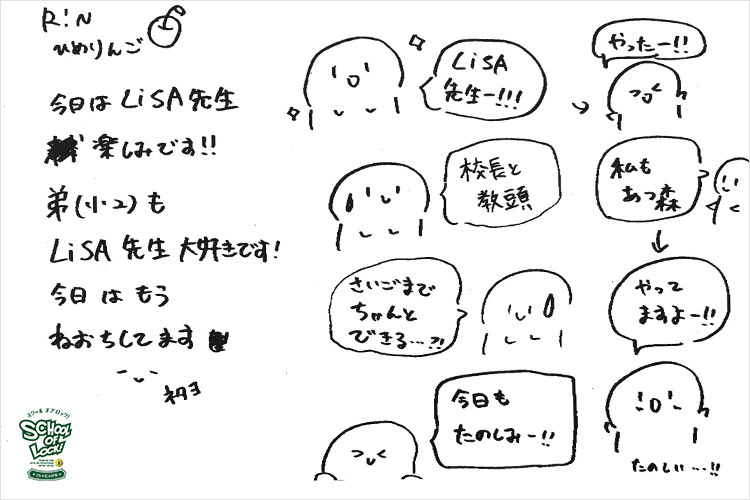 R!N
ひめりんご
今日は LiSA先生
楽しみです!!
弟(小2)も
LiSA先生 大好きです!
今日はもう
ねおちしてます
LiSA
先生ー!!!
校長と
教頭
さいごまで
ちゃんと
できる…?!
今日も
たのしみー!!
やったー!!
私も
あつ森
やって
ますよー!!
たのしい…!!
スクール オブ ロック!
SCHOOL
OF
LOCK!